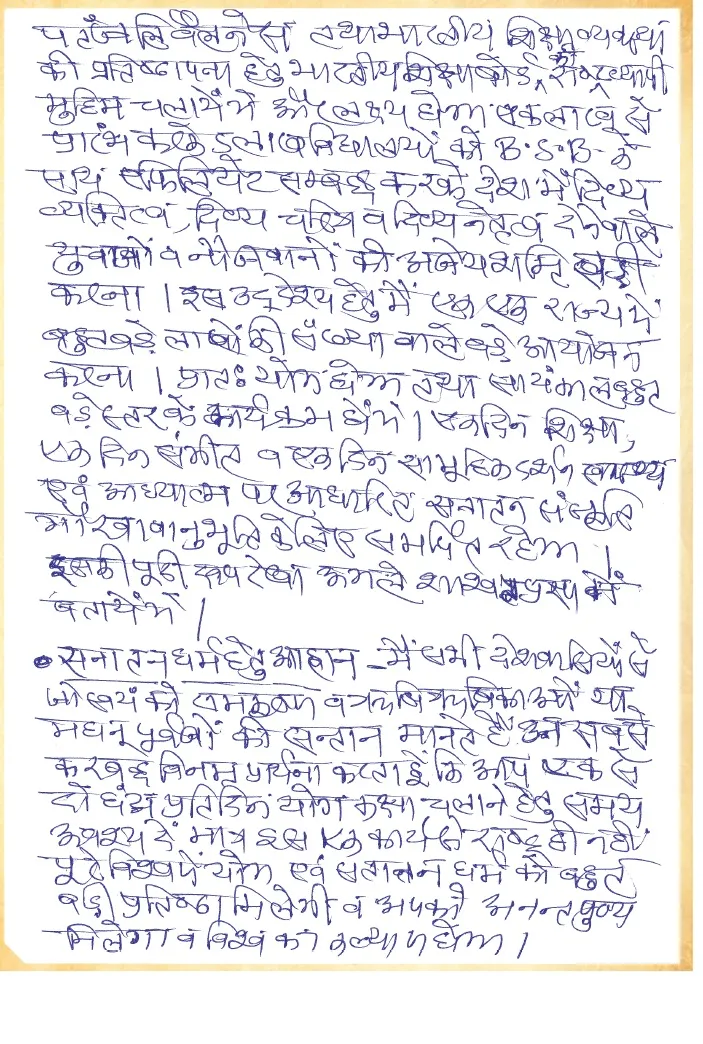 पतंजलि वैलनेस तथा भारतीय शिक्षा व्यवस्था
की प्रतिष्ठापना हेतु भारतीय शिक्षा बोर्ड की राष्ट्रव्यापी
मुहिम चलायेंगे और लक्ष्य होगा एक लाख से
प्रारंभ करके 5 लाख विद्यालयों को B.S.B. के
साथ एफिलियेट सम्बद्ध करके देश में दिव्य
व्यक्तित्व, दिव्य चरित्र व दिव्य नेतृत्व देने वाले
युवाओं व नौजवानों की अजेय शक्ति खड़ी
करना । इस उद्देश्य हेतु मैं एक एक राज्य में
बहुत बड़े लाखों की संख्या वाले बड़े आयोजन
करना । प्रातः योग होगा तथा सायंकाल बहुत
बड़े स्तर के कार्यक्रम होंगे । एक दिन शिक्षा,
एक दिन संगीत व एक दिन सामूहिक दर्शन
एवं आध्यात्म पर आधारित सनातन संस्कृति
गौरवानुभूति के लिए समर्पित रहेगा ।
इसकी पूरी रूपरेखा अगले में
बतायेंगे ।
• सनातन धर्म हेतु आह्वान – मैं सभी देशवासियों से
जो स्वयं को रामकृष्ण व ऋषि ऋषिकाओं या
महान् पूर्वजों की सन्तान मानते हैं उन सबसे
करबद्ध विनम्र प्रार्थना करता हूँ कि आप एक से
दो घंटा प्रतिदिन योग कक्षा चलाने हेतु समय
अवश्य दें मात्र इस एक कार्य से राष्ट्र ही नहीं
पूरे विश्व में योग एवं सनातन धर्म को बहुत
बड़ी प्रतिष्ठा मिलेगी व आपको अनन्त पुण्य
मिलेगा व विश्व का कल्याण होगा ।